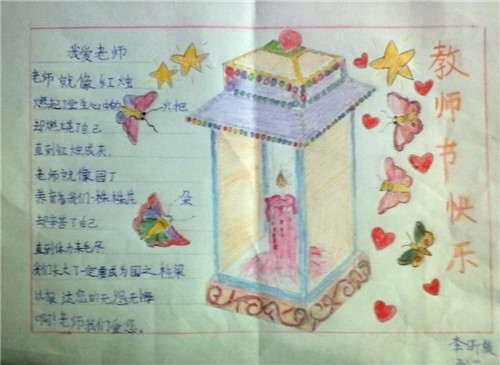 我爱老师
老师就像红烛
燃起了学生心中的火把
却燃烧了自己
直到红烛成灰
老师就像园丁
养育着我们一株株花朵
却辛苦了自己
直到体力耗尽
我们长大了一定要成为国之栋梁
让您的无怨无悔
啊!老师我们爱您。
教师节快乐
李